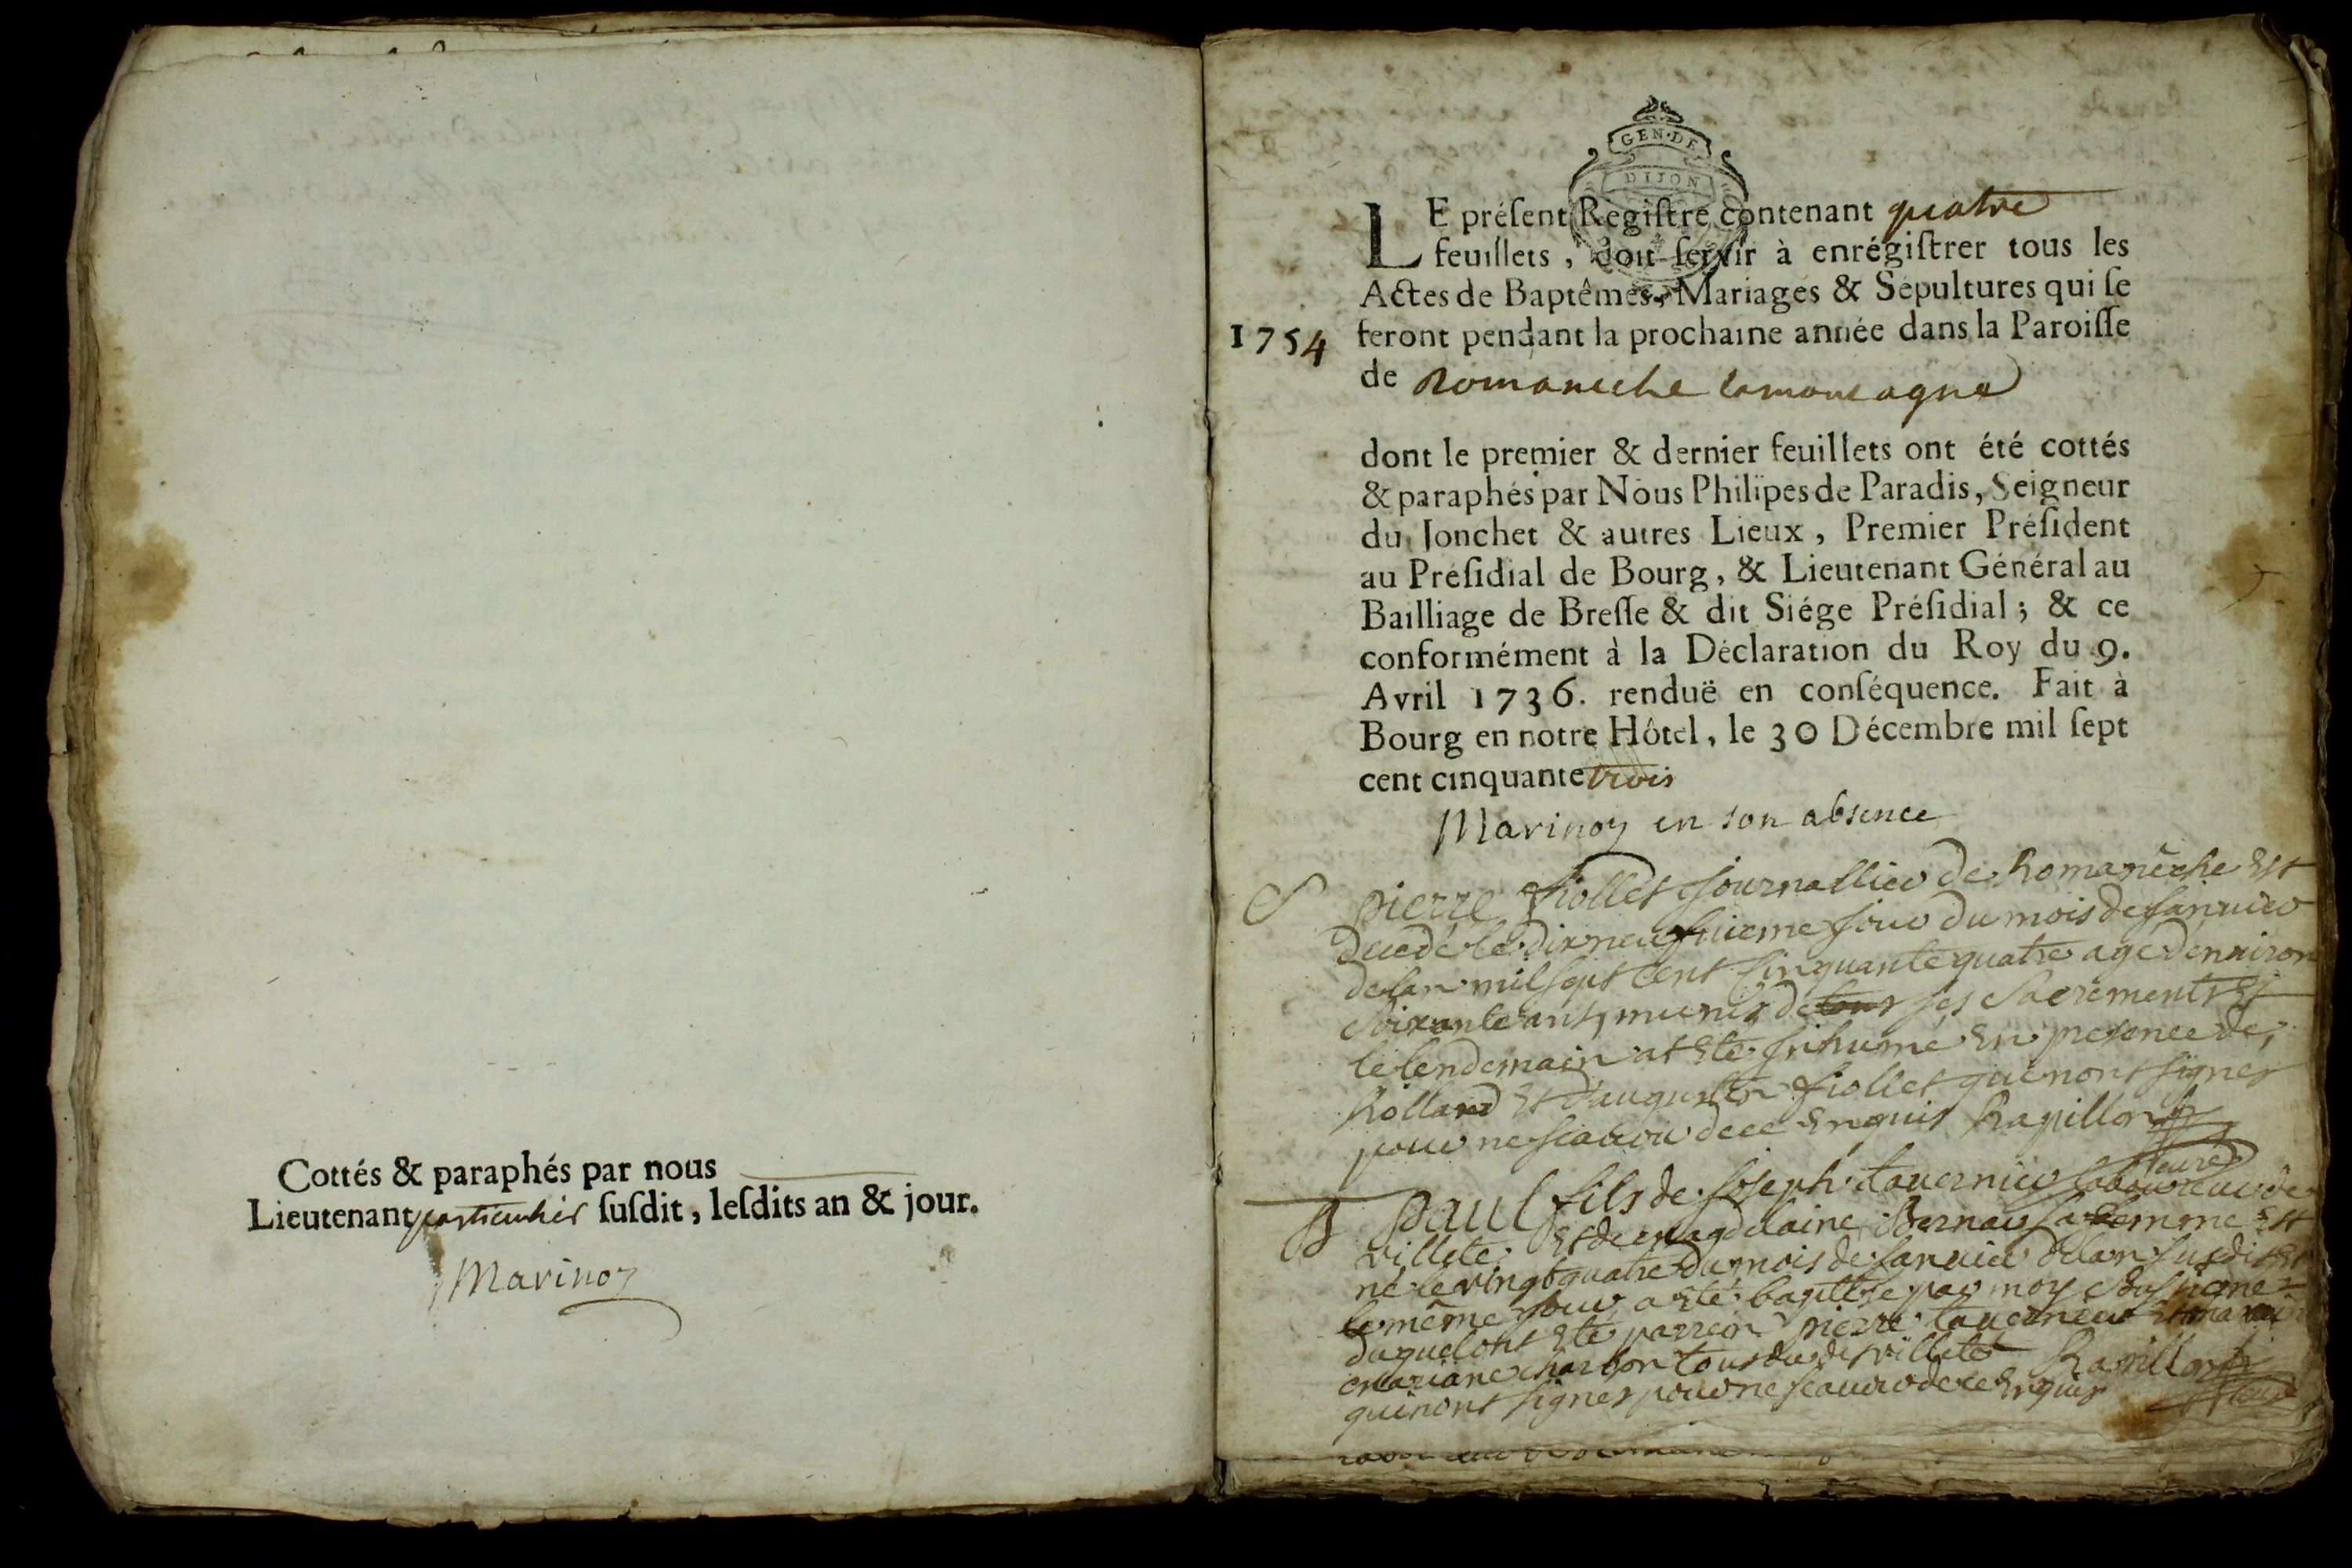 Cottés & paraphés par nous
Lieutenant particulier ſuſdit, leſdits an & jour.
Marinoz
GEN. DE
DIJON
LE préſent Regiſtre contenant quatre
feuillets, doit ſervir à enrégiſtrer tous les
Actes de Baptêmes, Mariages & Sépultures qui ſe
1754 feront pendant la prochaine année dans la Paroiſſe
de Romaneche lamontagne
dont le premier & dernier feuillets ont été cottés
& paraphés par Nous Philipes de Paradis, Seigneur
du Jonchet & autres Lieux, Premier Préſident
au Préſidial de Bourg, & Lieutenant Général au
Bailliage de Breſſe & dit Siége Préſidial; & ce
conformément à la Déclaration du Roy du 9.
Avril 1736. renduë en conſéquence. Fait à
Bourg en notre Hôtel, le 30 Décembre mil ſept
cent cinquante trois
Marinoz en son absence
S pierre fiollet journallier de Romanêche Est
decedé le dix neufvieme jour du mois de janvier
de lan mil sept cent cinquante quatre agé denviron
soixante ans, munis de tous ses sacrements Et
le lendemain at Eté jnhumé En presence de,
Rolland Et d'augustin fiollet qui nont signes
pour ne scavoir de ce Enquis Rapillon
B paul fils de joseph tavernier laboureur de
villete Et de magdelaine Bernau sa femme Est
né le vingt quatre du mois de janvier de lan susdit Et
le même jour a Eté baptise par moy soussigne
duquel ont Eté parrein pierre tavernier
mariane charbon tous du dit villete Rapillon
qui nont signes pour ne scavoir de ce Enquis